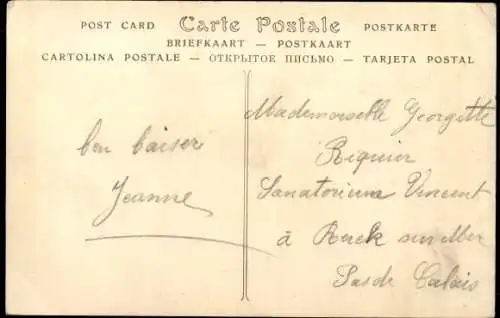 POST CARD Carte Postale POSTKARTE
BRIEFKAART — POSTKAART
CARTOLINA POSTALE — ОТКРЫТОЕ ПИСЬМО — TARJETA POSTAL
bon baiser
Jeanne
Mademoiselle Georgette
Riquier
Sanatorium Vincent
à Berck sur Mer
Pas de Calais